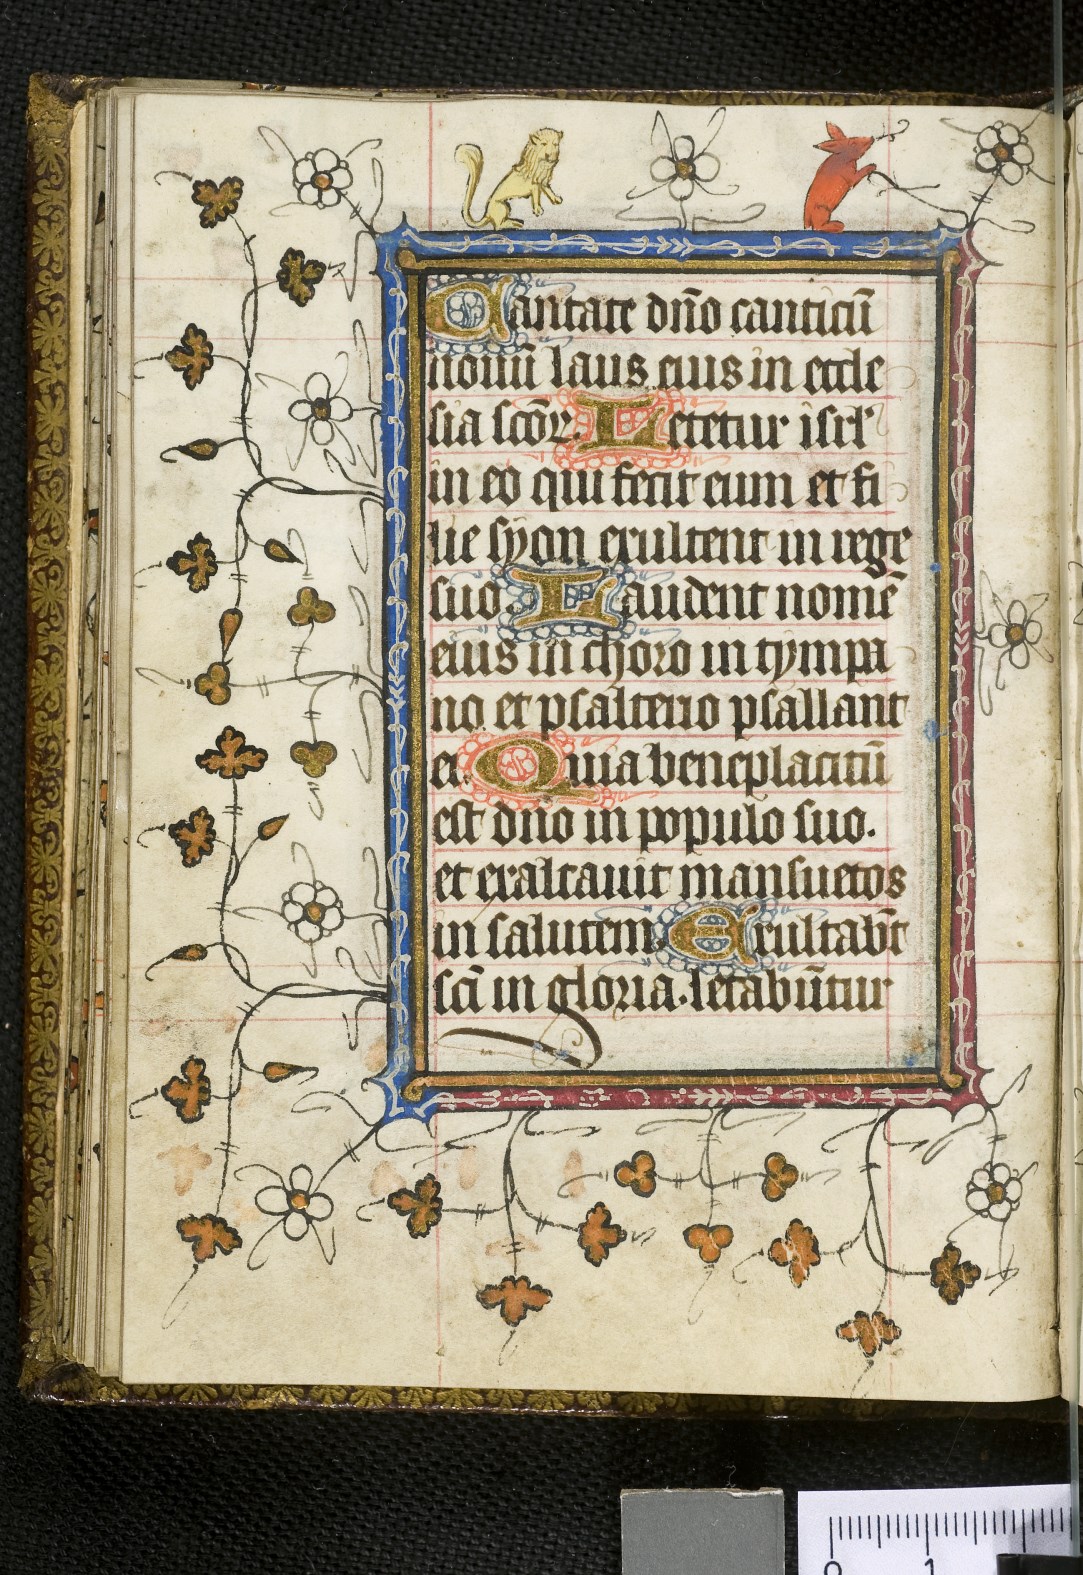 Cantate dño canticũ
nouũ laus eius in eccle
sia scõr. Letetur isrl'
in eo qui fecit eum et fi
lie syon exultent in rege
suo. Laudent nomẽ
eius in choro in tympa
no et psalterio psallant
ei. Quia beneplacitũ
est dño in populo suo.
et exaltauit mansuetos
in salutem. Exultab̃t
sc̃i in gloria. letabũtur
0 1